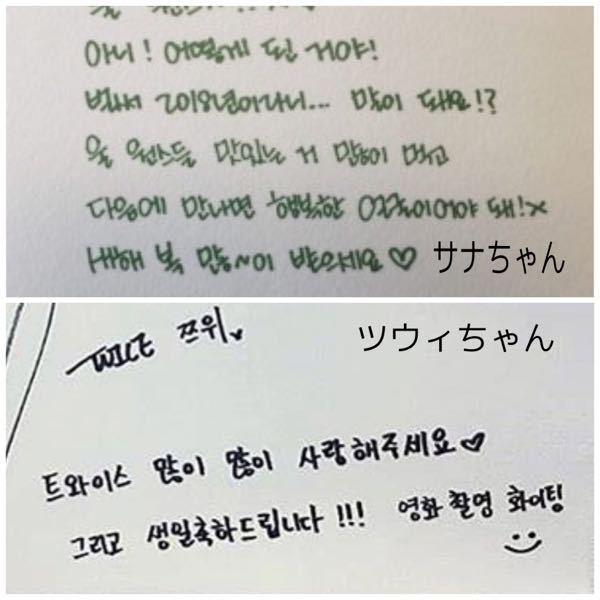 아니! 어떻게 된 거야!
벌써 2018년이라니... 말이 돼요!?
울 원스들 맛있는 거 많이 먹고
다음에 만나면 행복한 얼굴이어야 돼!x
새해 복 많~이 받으세요♡ サナちゃん
TWICE 쯔위 ツウィちゃん
트와이스 많이 많이 사랑해주세요♡
그리고 생일축하드립니다!!! 영화 촬영 화이팅